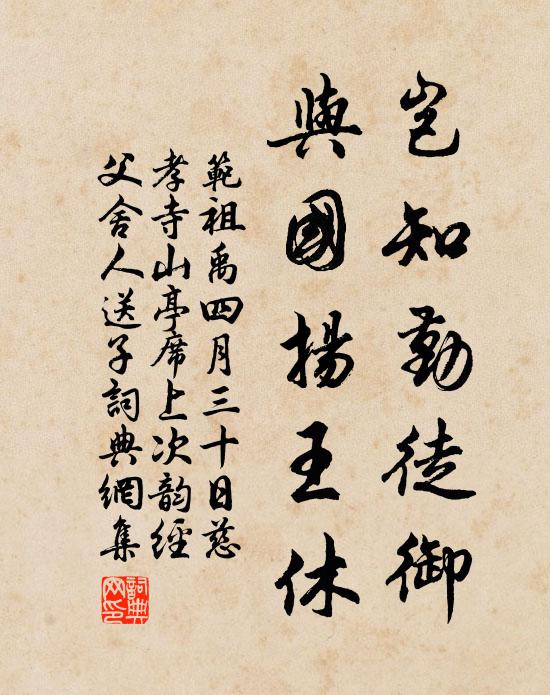 豈知勤徒御
與國揚王休
範祖禹四月三十日慈
孝寺山亭席上次韵經
父舍人送子詞典網集
詞典网印